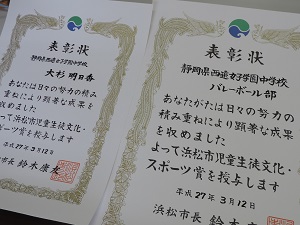 表彰状
静岡県西遠女子学園中学校
大杉 明日香
あなたは日々の努力の積み
重ねにより顕著な成果を
収めました
よって浜松市児童生徒文化・
スポーツ賞を授与します
平成27年3月12日
市長 鈴木康友
表彰状
静岡県西遠女子学園中学校
バレーボール部
あなたがたは日々の努力の
積み重ねにより顕著な成果
を収めました
よって浜松市児童生徒文化・
スポーツ賞を授与します
平成27年3月12日
浜松市長 鈴木